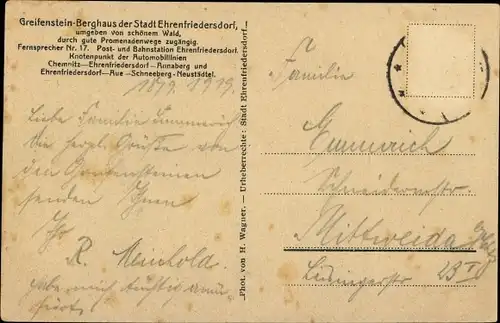 Greifenstein-Berghaus der Stadt Ehrenfriedersdorf,
umgeben von schönem Wald,
durch gute Promenadenwege zugängig.
Fernsprecher Nr. 17. Post- und Bahnstation Ehrenfriedersdorf.
Knotenpunkt der Automobillinien
Chemnitz—Ehrenfriedersdorf—Annaberg und
Ehrenfriedersdorf—Aue—Schneeberg-Neustädtel.
Liebe Familie
die herzl. Grüße von
den Greifensteinen
senden Ihnen
Ihr
R. Meinhold.
habe mich
Phot. von H. Wagner. — Urheberrechte: Stadt Ehrenfriedersdorf
Familie
Schneidermstr
Mittweida
23 I